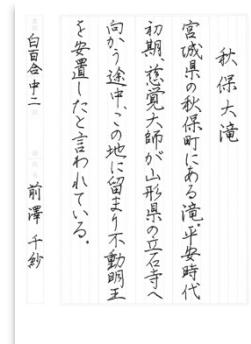 秋保大滝
宮城県の秋保町にある滝。平安時代
初期、慈覚大師が山形県の立石寺へ
向かう途中、この地に留まり不動明王
を安置したと言われている。
白百合 中二
前澤 千紗